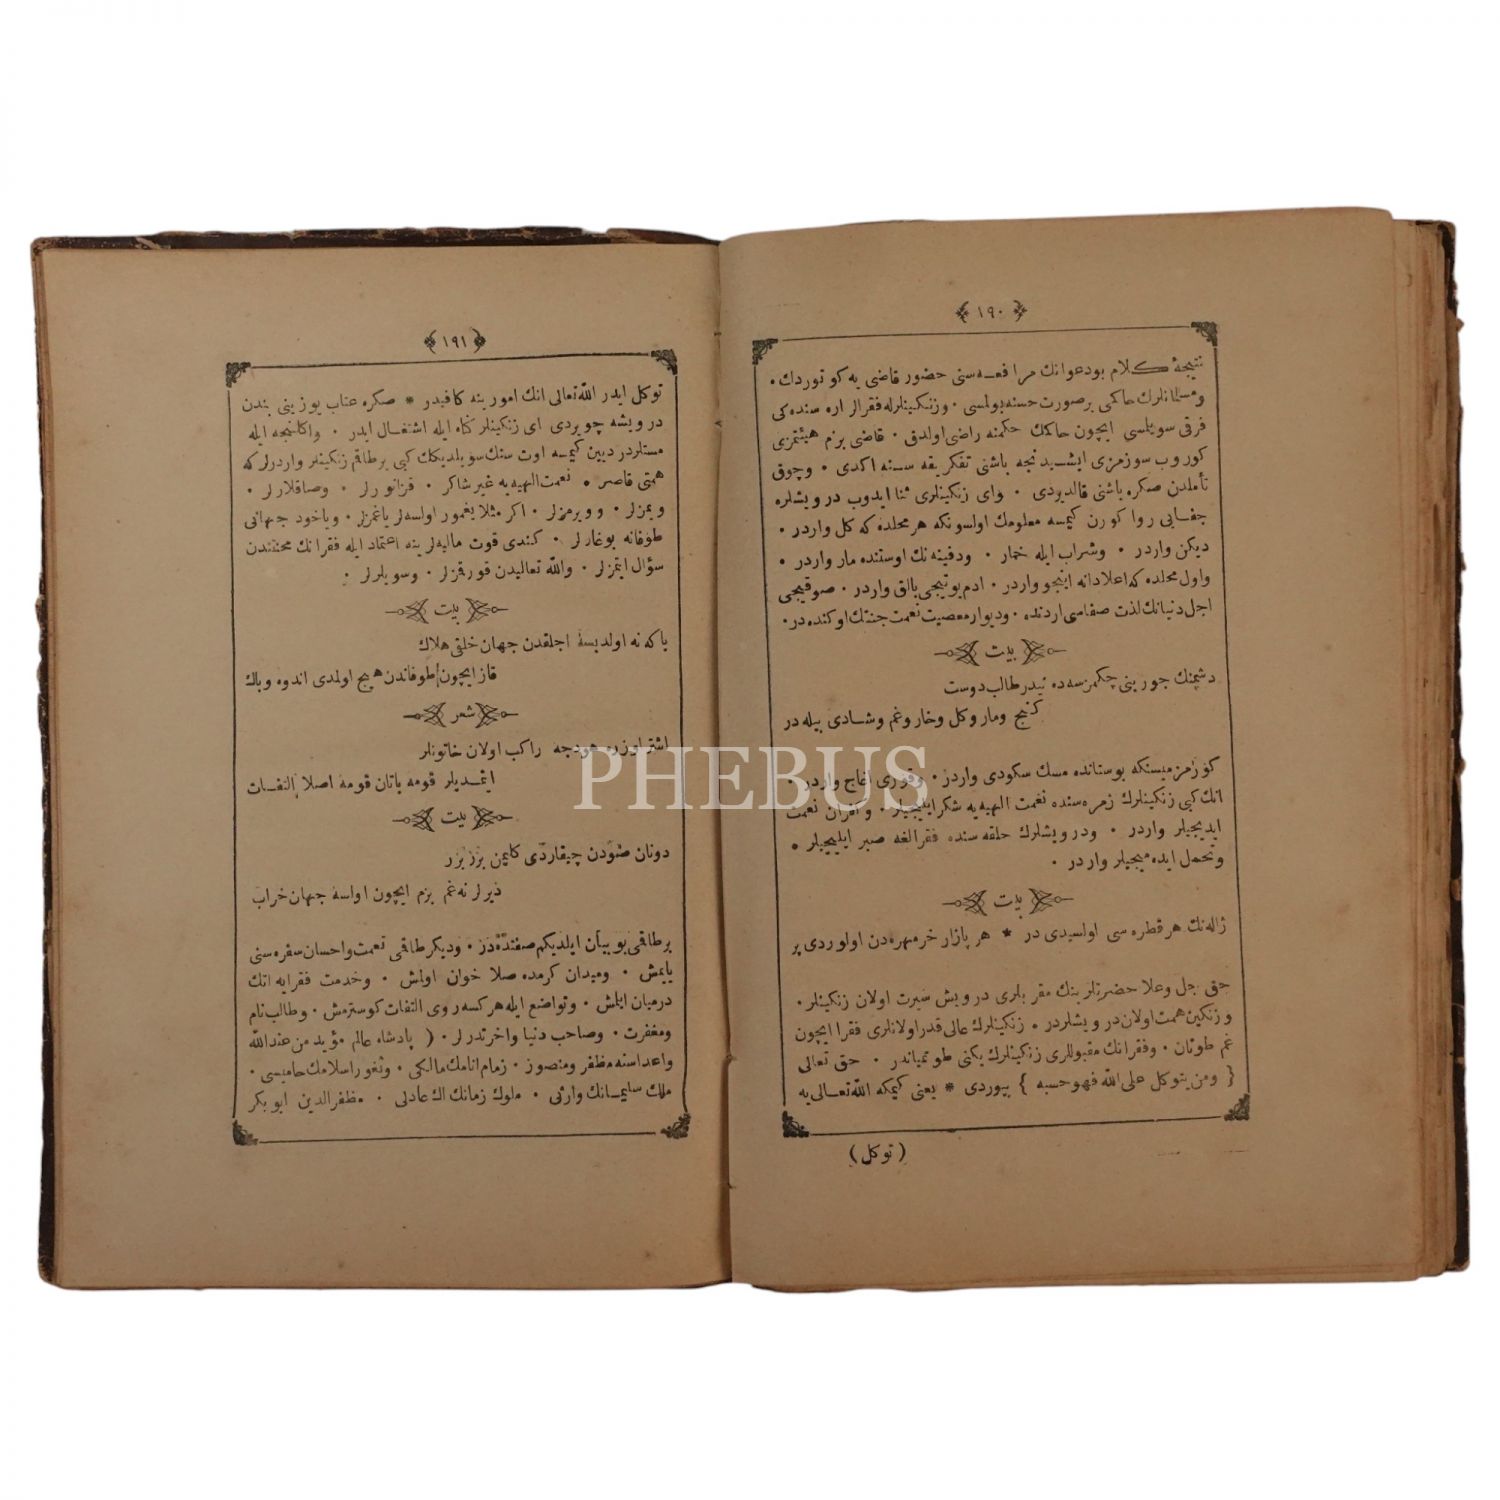 ﴿ ١٩٠ ﴾
نتیجۀ كلام بودعوانك مرافعه سنی حضور قاضی یه كوتوردك •
ومسلمانلرك حاكمی برصورت حسنه بولمسی • وزنكینلرله فقرالر اره سنده كی
فرقی سویلسی ایچون حاكمك حكمنه راضی اولدق • قاضی بزم هیئتمزی
كوروب سوزمزی ایشیدنجه باشنی تفكر یقه سنه اكدی • وچوق
تأملدن صكره باشنی قالدیردی • وای زنكینلری ثنا ایدوب درویشلره
جفایی روا كورن كیمسه معلومك اولسونكه هر محلده كه كل واردر •
دیكن واردر • وشراب ایله خمار • ودفینه نك اوستنده مار واردر •
واول محلده كه اعلا دانه اینجو واردر • ادم یوتیجی بالق واردر • صوقیجی
اجل دنیانك لذت صفاسی اردنده • ودیوار معصیت نعمت جنتك اوكنده در •
بیت
دشمنك جورینی چكمزسه ده نیدر طالب دوست
كنج ومار وكل وخار وغم وشادی بیله در
كورمزمیسنكه بوستانده مسك سكودی واردر • وقوری اغاج واردر •
انك كبی زنكینلرك زمره سنده نعمت الهیه یه شكر ایلیجیلر • وكفران نعمت
ایدیجیلر واردر • ودرویشلرك حلقه سنده فقرالغه صبر ایلیجیلر •
وتحمل ایده میجیلر واردر •
بیت
ژاله نك هر قطره سی اولسیدی در * هر پازار خرمهره دن اولوردی پر
حق جل وعلا حضرتلرینك مقربلری درویش سیرت اولان زنكینلر •
وزنكین همت اولان درویشلردر • زنكینلرك عالی قدر اولانلری فقرا ایچون
غم طوتان • وفقرانك مقبوللری زنكینلرك یكنی طوتمیاندر • حق تعالی
{ ومن یتوكل علی الله فهو حسبه } بیوردی * یعنی كیمكه الله تعالی یه
( توكل )
﴿ ١٩١ ﴾
توكل ایدر الله تعالی انك امورینه كافیدر * صكره عتاب یوزینی بندن
درویشه چویردی ای زنكینلر كناه ایله اشتغال ایدر • واكلنجه ایله
مستلردر دیین كیمسه اوت سنك سویلدیكك كبی برطاقم زنكینلر واردرلر كه
همتی قاصر • نعمت الهیه یه غیر شاكر • قزانورلر • وصاقلارلر •
ویمزلر • وویرمزلر • اكر مثلا یغمور اولسه لر یاغمزلر • ویاخود جهانی
طوفانه بوغارلر • كندی قوت مالیه لرینه اعتماد ایله فقرانك محنتندن
سؤال ایتمزلر • والله تعالیدن قورقمزلر • وسویلرلر •
بیت
باكه نه اولدیسه اجلقدن جهان خلقی هلاك
قاز ایچون طوفاندن هیچ اولمدی اندوه وباك
شعر
اشتر اوزره هودجه راكب اولان خاتونلر
ایتمدیلر قومه باتان قومه اصلا التفات
بیت
دونان صودن چیقاردی كلیمن بزز بزر
دیرلر نه غم بزم ایچون اولسه جهان خراب
برطاقی بو بیان ایلدیكم صفتده در • ودیكر طاقی نعمت واحسان سفره سنی
یایمش • ومیدان كرمده صلا خوان اولمش • وخدمت فقرایه انك
درمیان ایلمش • وتواضع ایله هر كسه روی التفات كوسترمش • وطالب نام
ومغفرت • وصاحب دنیا واخرتدرلر • ( پادشاه عالم مؤید من عند الله
واعداسنه مظفر ومنصور • زمام انامك مالكی • وثغور اسلامك حامیسی •
ملك سلیمانك وارثی • ملوك زمانك اك عادلی • مظفر الدین ابو بكر
PHEBUS